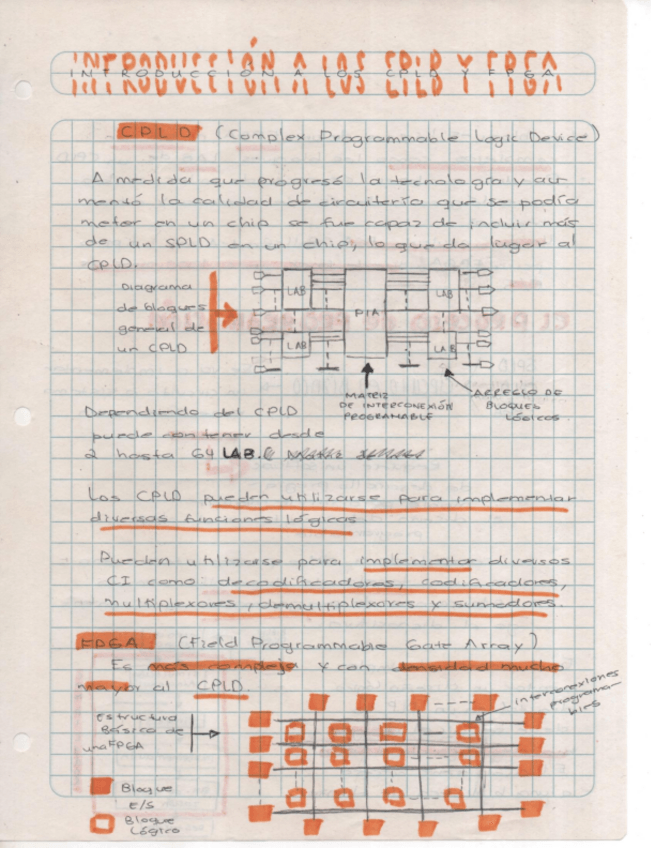 INTRODUCCIÓN A LOS CPLD Y FPGA
INTRODUCCIÓN A LOS CPLD Y FPGA
CPLD (Complex Programmable Logic Device)
A medida que progresó la tecnología y au-
mentó la calidad de circuitería que se podía
meter en un chip se fue capaz de incluir más
de un SPLD en un chip, lo que da lugar al
CPLD.
Diagrama
de bloques
general de
un CPLD
LAB
LAB
PIA
LAB
LAB
MATRIZ
DE INTERCONEXIÓN
PROGRAMABLE
ARREGLO DE
BLOQUES
LÓGICOS
Dependiendo del CPLD
puede contener desde
2 hasta 64 LAB.
Los CPLD pueden utilizarse para implementar
diversas funciones lógicas
Pueden utilizarse para implementar diversos
CI como decodificadores, codificadores,
multiplexores, demultiplexores y sumadores.
FPGA (Field Programmable Gate Array)
Es más complejo y con densidad mucho
mayor al CPLD.
Estructura
Básica de
una FPGA
interconexiones
programa-
bles
Bloque
E/S
Bloque
Lógico